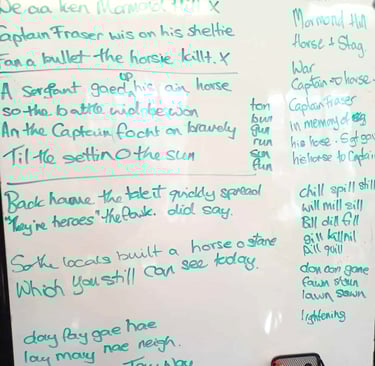 We aa ken Mormond Hill X
Captain Fraser wis on his sheltie
Fan a bullet the horsie killt. X
A Sergant gaed up his ain horse
so the battle wid be won
An the Captain focht on bravely
Til the settin O the sun
Back hame the tale it quickly spread
"They're heroes" the fowk did say.
So the locals built a horse o stane
Which you still can see today.
day Pay gae hae
lay may nae neigh.
Mormond Hill
Horse + Stag.
War
Captain horse.
Captain Fraser
in memory of
his hose. Sgt gav
his horse to Captain
ton
bun
gun
run
sun
fun
chill spill still
will mill sill
Bill dill fill
gill kill nil
pill quill
don con gone
fawn
lawn
lightening